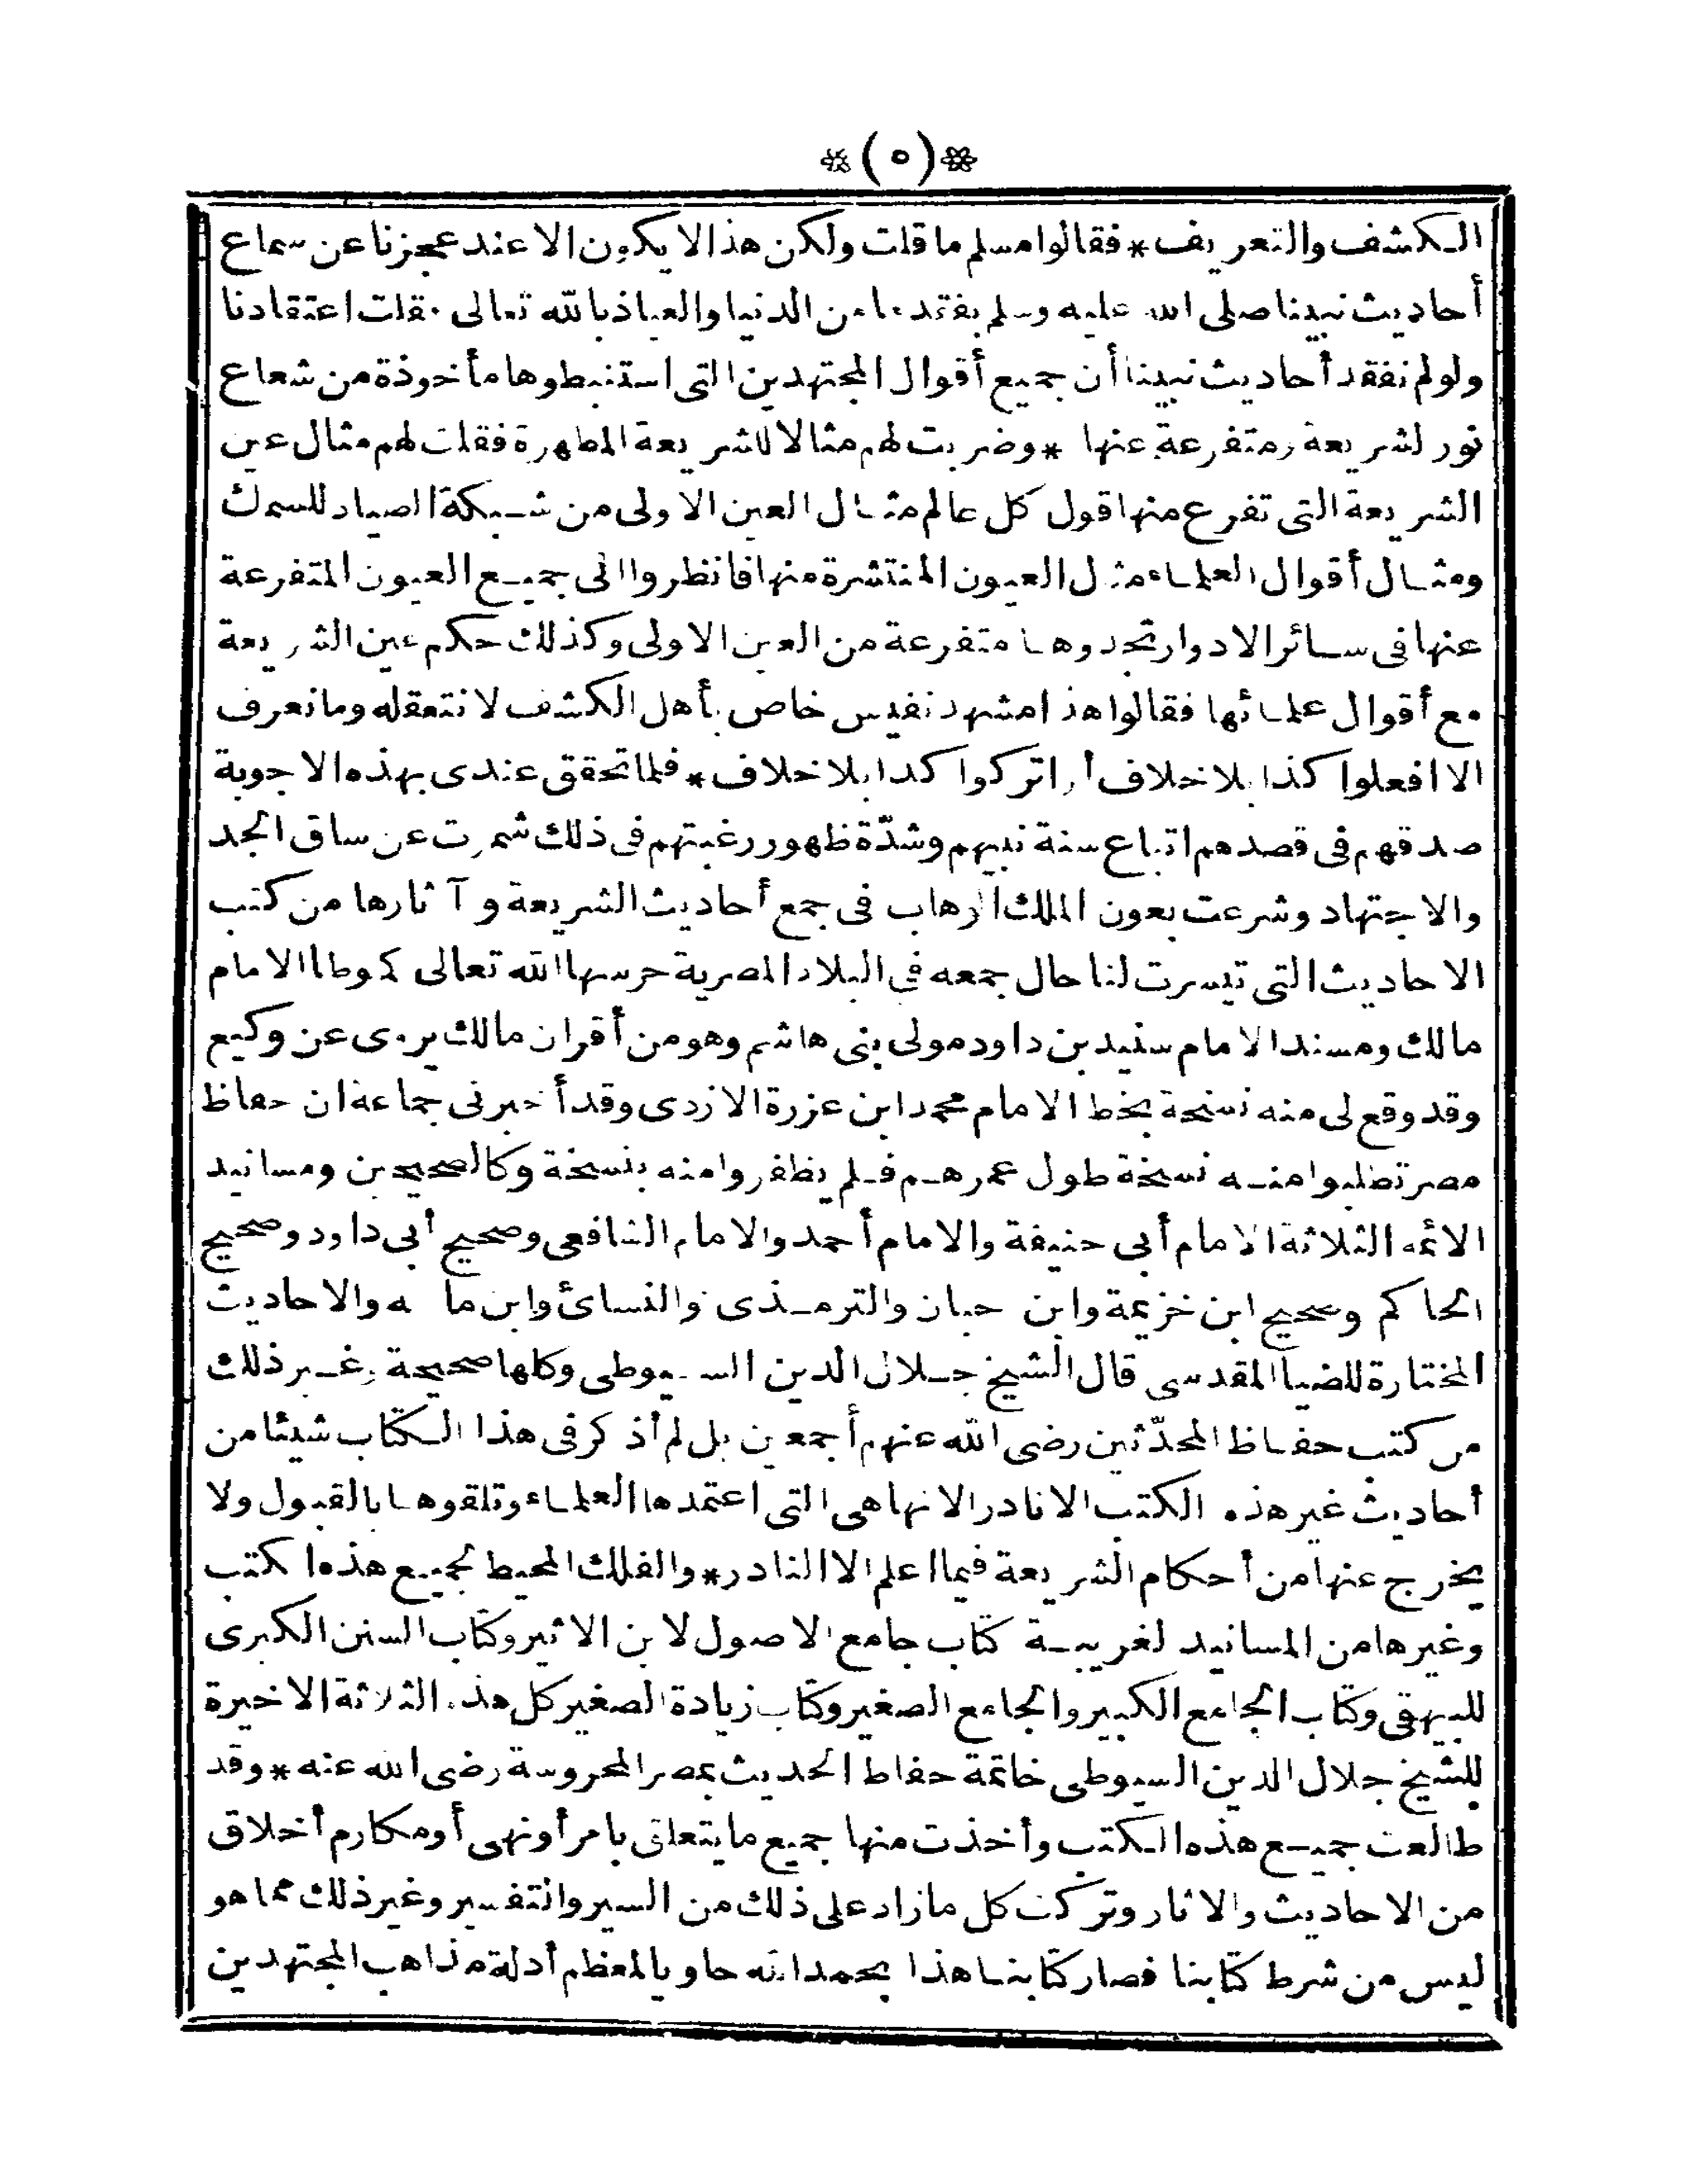 *(٥)*
الكشف والتعريف * فقالوا مسلم ما قلت ولكن هذا لا يكون الا عند عجزنا عن سماع
أحاديث نبينا صلى الله عليه وسلم بفقدها من الدنيا والعياذ بالله تعالى فقلت اعتقادنا
ولولم نفقد أحاديث نبينا أن جميع أقوال المجتهدين التى استنبطوها مأخوذة من شعاع
نور لشريعة ومتفرعة عنها * وضربت لهم مثالا للشريعة المطهرة فقلت لهم مثال عين
الشريعة التى تفرع منها قول كل عالم مثال العين الاولى من شبكة الصياد للسمك
ومثال أقوال العلماء مثل العيون المنتشرة منها فانظروا الى جميع العيون المتفرعة
عنها فى سائر الادوار تجدوها متفرعة من العين الاولى وكذلك حكم عين الشريعة
مع أقوال علمائها فقالوا هذا مشهد نفيس خاص بأهل الكشف لا نتعقله وما نعرف
الا افعلوا كذا بلا خلاف أو اتركوا كذا بلا خلاف * فلما تحقق عندى بهذه الاجوبة
صدقهم فى قصدهم اتباع سنة نبيهم وشدّة ظهور رغبتهم فى ذلك شمرت عن ساق الجد
والاجتهاد وشرعت بعون الملك الوهاب فى جمع أحاديث الشريعة وآثارها من كتب
الاحاديث التى تيسرت لنا حال جمعه فى البلاد المصرية حرسها الله تعالى كموطا الامام
مالك ومسند الامام سنيد بن داود مولى بنى هاشم وهو من أقران مالك يروى عن وكيع
وقد وقع لى منه نسخة بخط الامام محمد ابن عزرة الازدى وقد أخبرنى جماعة ان حفاظ
مصر تطلبوا منه نسخة طول عمرهم فلم يظفروا منه بنسخة وكالصحيحين ومسانيد
الائمه الثلاثة الامام أبى حنيفة والامام أحمد والامام الشافعى وصحيح أبى داود وصحيح
الحاكم وصحيح ابن خزيمة وابن حبان والترمذى والنسائ وابن ما ه والاحاديث
المختارة للضيا المقدسى قال الشيخ جلال الدين السيوطى وكلها صحيحة وغير ذلك
من كتب حفاظ المحدّثين رضى الله عنهم أجمعين بل لم أذكر فى هذا الكتاب شيئا من
أحاديث غير هذه الكتب الا نادرا لانها هى التى اعتمدها العلماء وتلقوها بالقبول ولا
يخرج عنها من أحكام الشريعة فيما اعلم الا النادر * والفلك المحيط بجميع هذه ا كتب
وغيرها من المسانيد لغريبة كتاب جامع الاصول لابن الاثير وكتاب السنن الكبرى
للبيهقى وكتاب الجامع الكبير والجامع الصغير وكتاب زيادة الصغير كل هذه الثلاثة الاخيرة
للشيخ جلال الدين السيوطى خاتمة حفاظ الحديث بمصر المحروسة رضى الله عنه * وقد
طالعت جميع هذه الكتب وأخذت منها جميع ما يتعلق بامر أو نهى أو مكارم أخلاق
من الاحاديث والاثار وتركت كل ما زاد على ذلك من السير والتفسير وغير ذلك مما هو
ليس من شرط كتابنا فصار كتابنا هذا بحمد الله حاويا لمعظم أدلة مذاهب المجتهدين